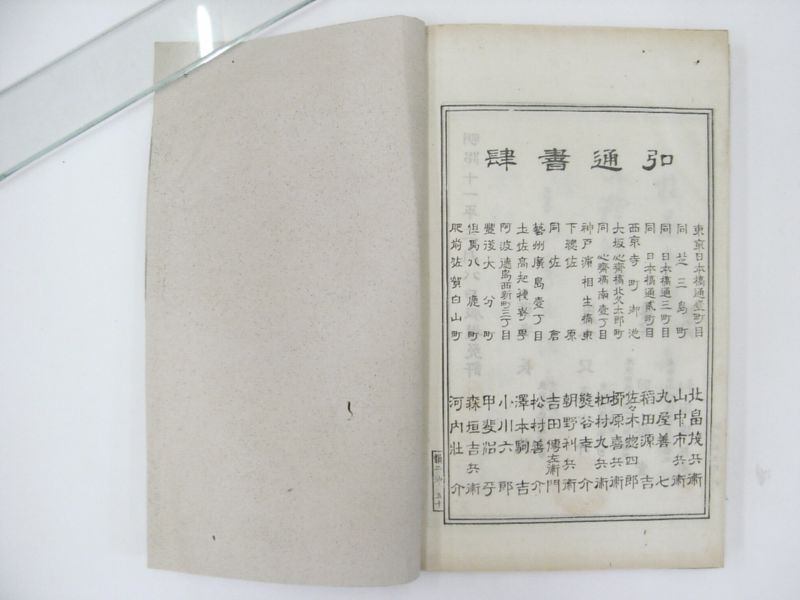 弘通書肆
東京日本橋通壹町目 北畠茂兵衛
同 芝三島町 山中市兵衛
同 日本橋通三町目 丸屋善七
同 日本橋通貳町目 稻田源吉
西京寺町御池 佐々木惣四郎
大坂心齋橋北久太郎町 柳原喜兵衛
同 心齋橋南壹丁目 松村九兵衛
神戸浦相生橋東 熊谷幸介
下總佐原 朝野利兵衛
同 佐倉 吉田傳左衛門
藝州廣島壹丁目 松村善介
土佐高知種嵜 澤本駒吉
阿波德島西新町三丁目 小川六郎
豐後大分町 甲斐治平
但馬八鹿町 森垣吉兵衛
肥前佐賀白山町 河内壯介
五十